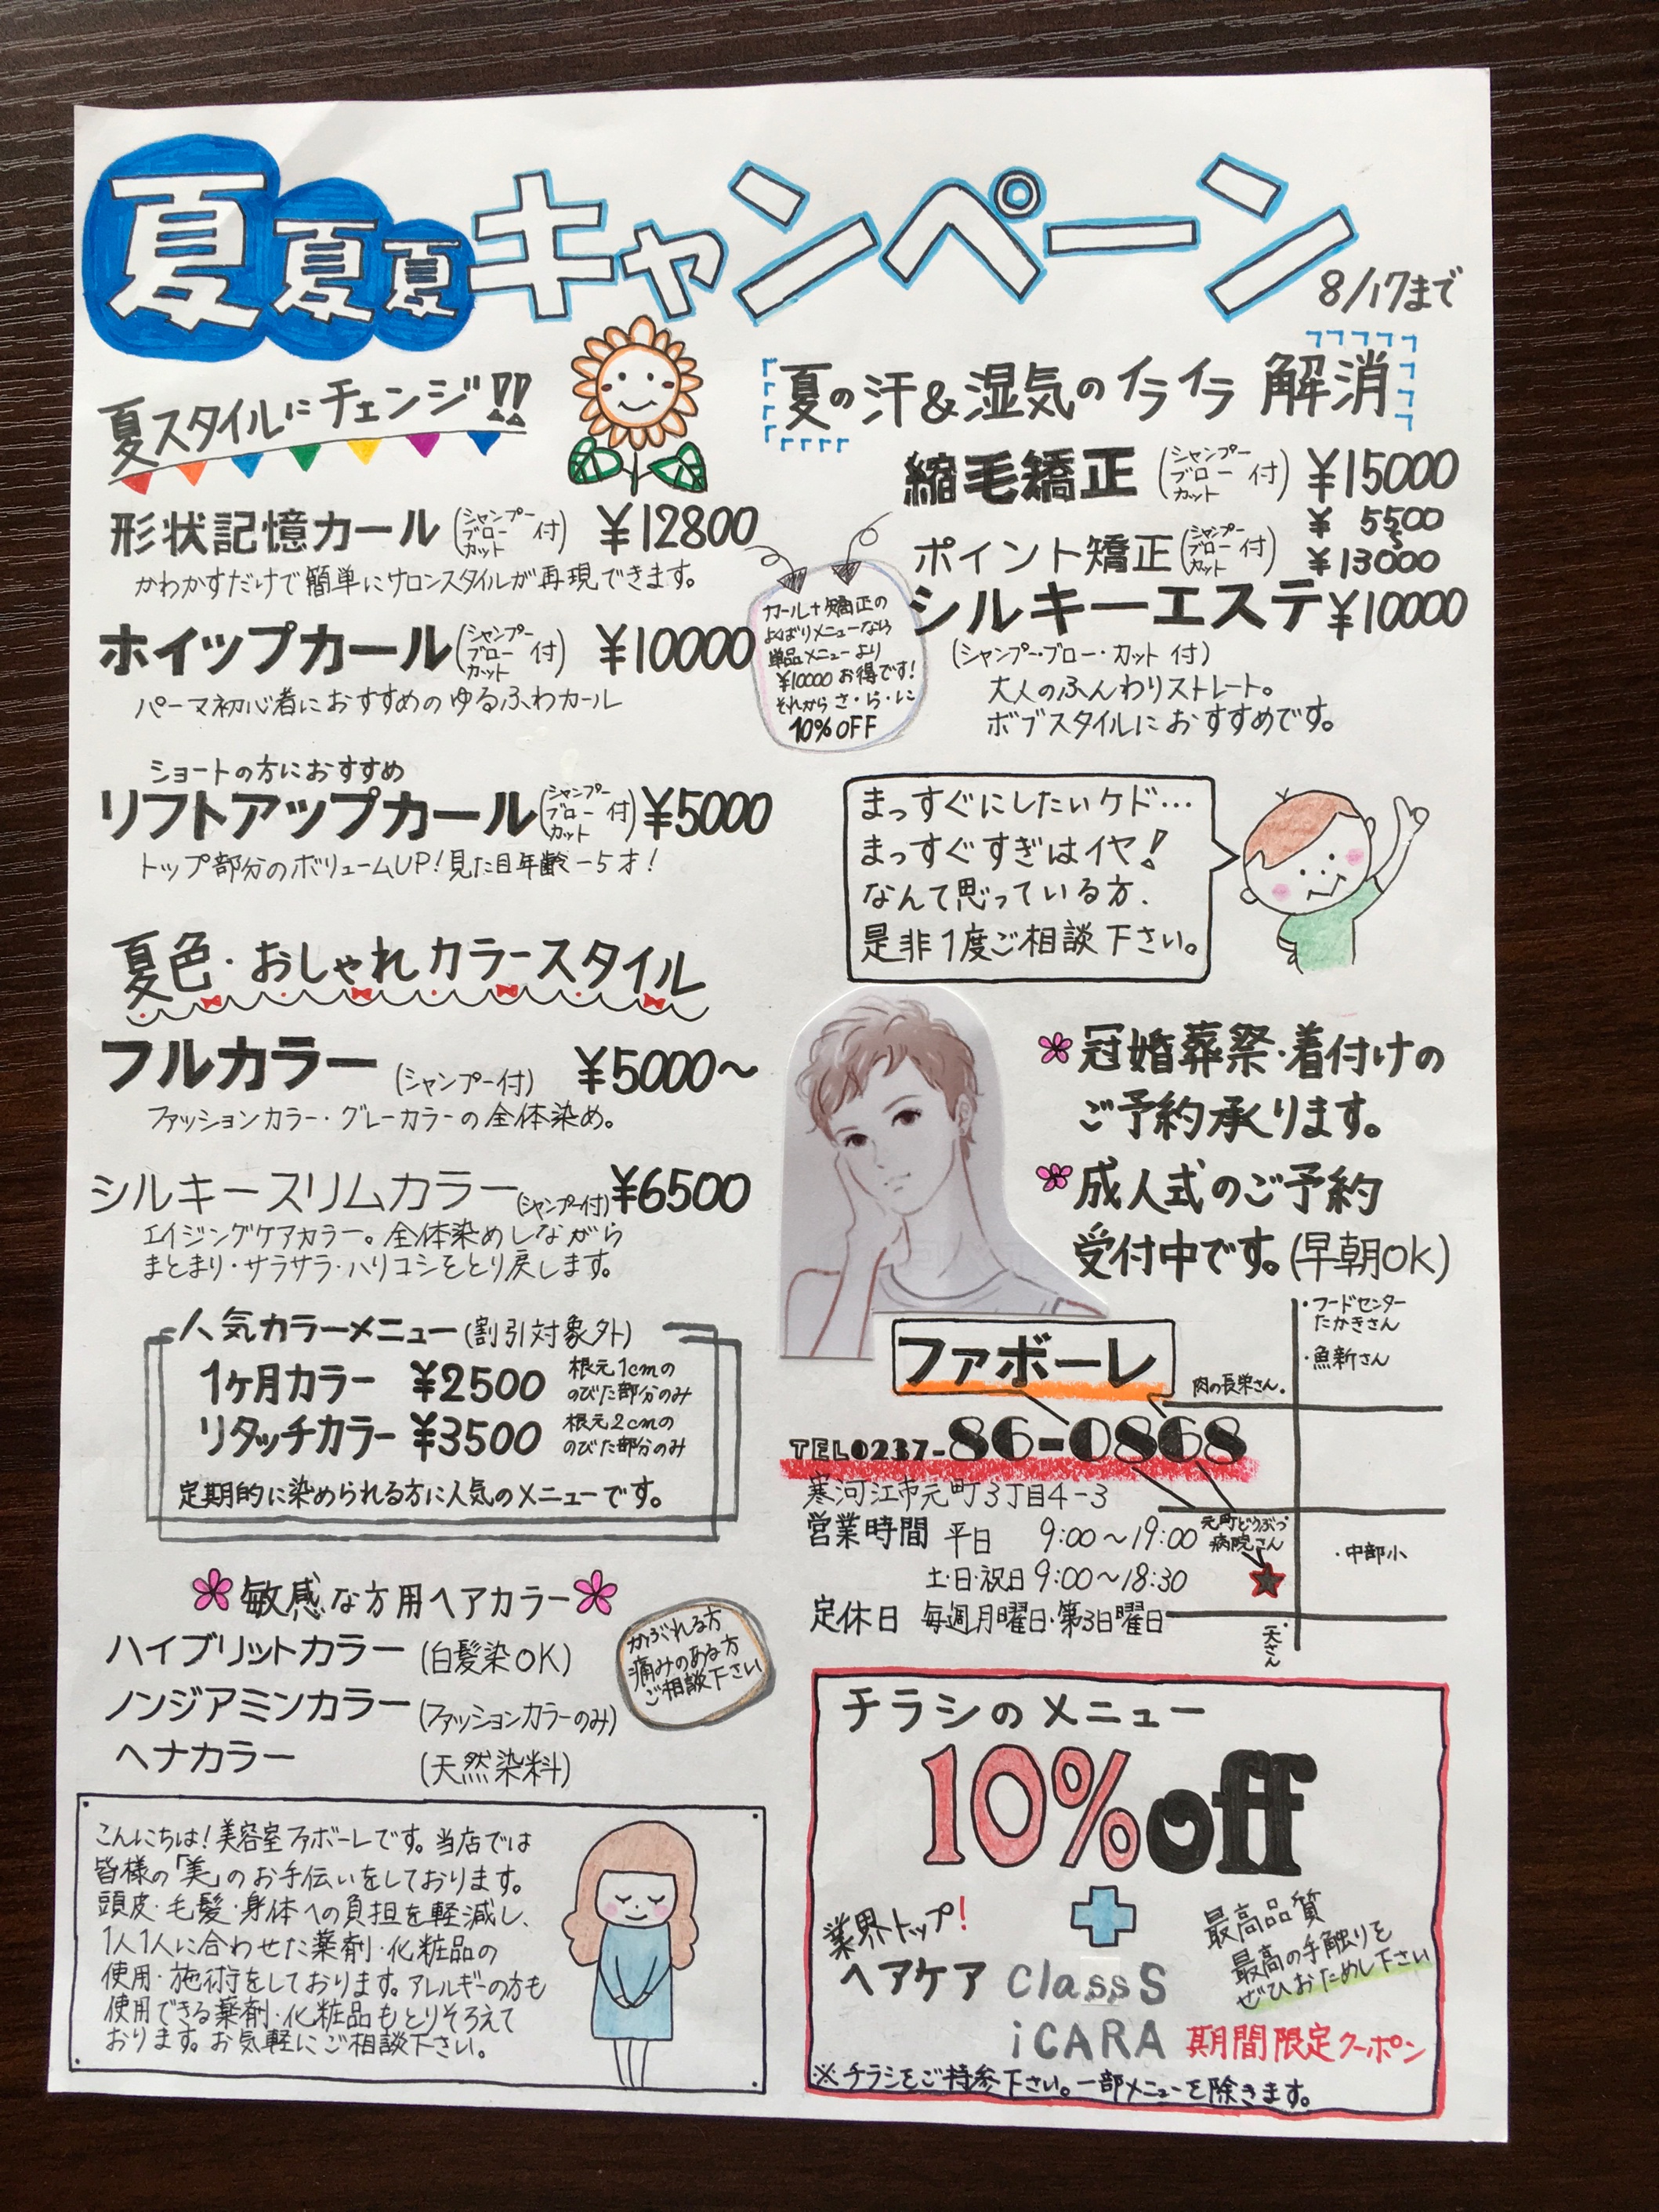 夏夏夏キャンペーン
8/17まで
夏スタイルにチェンジ!!
形状記憶カール(シャンプー ブロー カット 付) ¥12800
かわかすだけで簡単にサロンスタイルが再現できます。
ホイップカール(シャンプー ブロー カット 付) ¥10000
パーマ初心者におすすめのゆるふわカール
ショートの方におすすめ
リフトアップカール(シャンプー ブロー カット 付) ¥5000
トップ部分のボリュームUP!見た目年齢-5才!
夏の汗&湿気のイライラ解消
縮毛矯正(シャンプー ブロー カット 付) ¥15000
ポイント矯正(シャンプー ブロー カット 付) ¥5500〜¥13000
シルキーエステ¥10000
(シャンプー・ブロー・カット付)
大人のふんわりストレート。
ボブスタイルにおすすめです。
カール+矯正の
よくばりメニューなら
単品メニューより
¥10000お得です!
それからさ・ら・に
10%OFF
まっすぐにしたいケド…
まっすぐすぎはイヤ!
なんて思っている方、
是非1度ご相談下さい。
夏色・おしゃれカラースタイル
フルカラー (シャンプー付) ¥5000〜
ファッションカラー・グレーカラーの全体染め。
シルキースリムカラー(シャンプー付)¥6500
エイジングケアカラー。全体染めしながら
まとまり・サラサラ・ハリコシをとり戻します。
人気カラーメニュー(割引対象外)
1ヶ月カラー ¥2500 根元1cmの
のびた部分のみ
リタッチカラー ¥3500 根元2cmの
のびた部分のみ
定期的に染められる方に人気のメニューです。
敏感な方用ヘアカラー
ハイブリットカラー (白髪染OK)
ノンジアミンカラー (ファッションカラーのみ)
ヘナカラー (天然染料)
かぶれる方
痛みのある方
ご相談下さい
こんにちは!美容室ファボーレです。当店では
皆様の「美」のお手伝いをしております。
頭皮・毛髪・身体への負担を軽減し、
1人1人に合わせた薬剤・化粧品の
使用・施術をしております。アレルギーの方も
使用できる薬剤・化粧品もとりそろえて
おります。お気軽にご相談下さい。
冠婚葬祭・着付けの
ご予約承ります。
成人式のご予約
受付中です。(早朝OK)
ファボーレ
TEL0237-86-0868
寒河江市元町3丁目4-3
営業時間 平日 9:00〜19:00
土・日・祝日 9:00〜18:30
定休日 毎週月曜日・第3日曜日
・フードセンター
たかきさん
・魚新さん
肉の長栄さん・
元町どうぶつ
病院さん
・中部小
一天さん
チラシのメニュー
10%off
+
業界トップ!
ヘアケア classS
iCARA
最高品質
最高の手触りを
ぜひおためし下さい
期間限定クーポン
※チラシをご持参下さい。一部メニューを除きます。